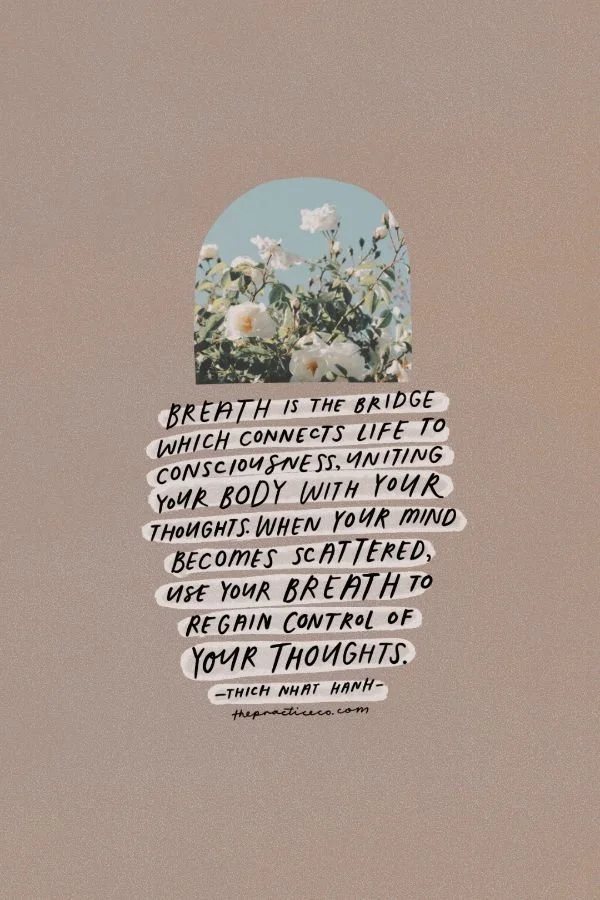 BREATH IS THE BRIDGE
WHICH CONNECTS LIFE TO
CONSCIOUSNESS, UNITING
YOUR BODY WITH YOUR
THOUGHTS. WHEN YOUR MIND
BECOMES SCATTERED,
USE YOUR BREATH TO
REGAIN CONTROL OF
YOUR THOUGHTS.
-THICH NHAT HANH-
thepracticeco.com